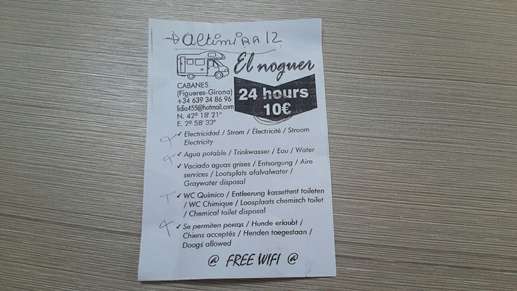 → Altimira 12
El noguer
CABANES
(Figueres-Girona)
+34 639 34 86 96
lidio455@hotmail.com
N. 42º 18' 21"
E. 2º 58' 33"
24 hours
10€
✓ Electricidad / Strom / Électricité / Stroom
Electricity
✓ Agua potable / Trinkwasser / Eau / Water
✓ Vaciado aguas grises / Entsorgung / Aire
services / Lootsplats afalvalwater /
Graywater disposal
✓ WC Químico / Entleerung kassettent toileten
/ WC Chimique / Loosplaats chemisch toilet
/ Chemical toilet disposal
✓ Se permiten perros / Hunde erlaubt /
Chiens acceptés / Henden toegestaan /
Doogs allowed
@ FREE WIFI @